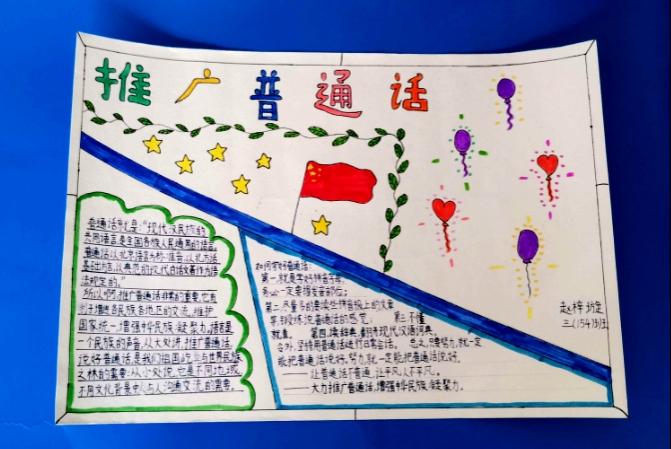 推广普通话
普通话就是:“现代汉民族的
共同语言是全国各族人民通用的语言。
普通话以北京语音为标准音,以北方话
基础方言,以典范的现代白话文著作为语
法规定的。”
所以啊,推广普通话非常的重要,它有
利于增进各民族各地区的交流,维护
国家统一,增强中华民族凝聚力。语言是
一个民族的声音,从大处讲,推广普通话,
说好普通话是我们祖国屹立与世界民族
之林的需要;从小处说,它是不同地域,
不同文化背景中人与人沟通交流的需要。
如何学好普通话:
第一,就是学好拼音字母,
第二,尽量多的要读些拼音报上的文章
就查。 第四,读辞典,翻开现代汉语词典。
另外,坚持用普通话进行日常会话。 总之,只要努力,就一定
能把普通话说好,努力,就一定能把普通话说好。
——让普通话不普通,让平凡人不平凡。
——大力推广普通话,增强中华民族凝聚力。
三(154)班